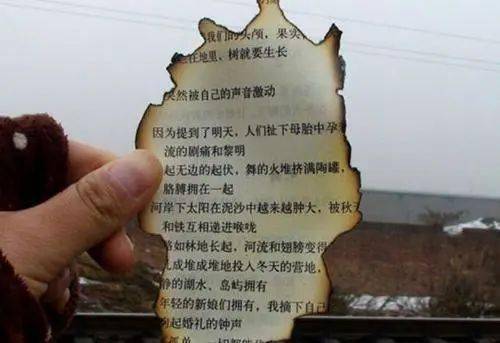 我们的头颅，果实
在地里、树就要生长
突然被自己的声音激动
因为提到了明天，人们扯下母胎中孕
流的剧痛和黎明
起无边的起伏，舞的火堆挤满陶罐，
胳膊拥在一起
河岸下太阳在泥沙中越来越肿大，被秋
和铁互相递进喉咙
路如林地长起，河流和翅膀变得
成堆成堆地投入冬天的营地，
静的湖水、岛屿拥有
年轻的新娘们拥有，我摘下自己
起婚礼的钟声
孤单，一切